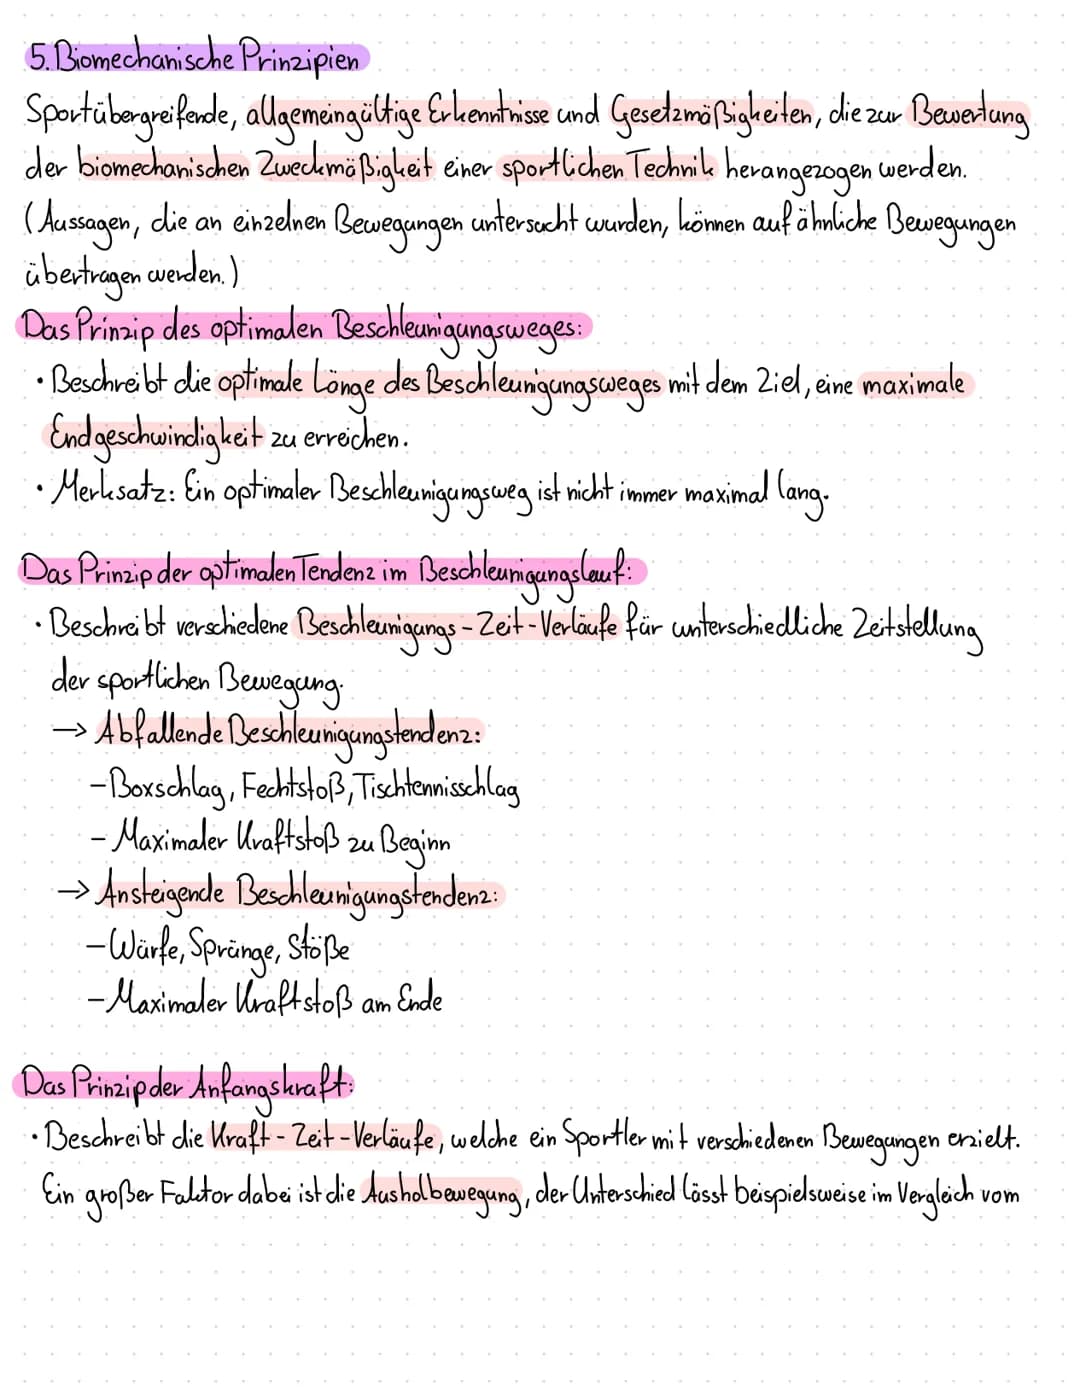 5. Biomechanische Prinzipien
Sportübergreifende, allgemeingültige Erkenntnisse und Gesetzmäßigkeiten, die zur Bewertung
der biomechanischen Zweckmäßigkeit einer sportlichen Technik herangezogen werden.
(Aussagen, die an einzelnen Bewegungen untersucht wurden, können auf ähnliche Bewegungen
übertragen werden.)
Das Prinzip des optimalen Beschleunigungsweges:
• Beschreibt die optimale Länge des Beschleunigungsweges mit dem Ziel, eine maximale
Endgeschwindigkeit zu erreichen.
• Merksatz: Ein optimaler Beschleunigungsweg ist nicht immer maximal lang.
Das Prinzip der optimalen Tendenz im Beschleunigungslauf:
• Beschreibt verschiedene Beschleunigungs-Zeit-Verläufe für unterschiedliche Zeitstellung
der sportlichen Bewegung.
→ Abfallende Beschleunigungstendenz:
- Boxschlag, Fechtstoß, Tischtennisschlag
- Maximaler Kraftstoß zu Beginn
→ Ansteigende Beschleunigungstendenz:
- Würfe, Sprünge, Stöße
- Maximaler Kraftstoß am Ende
Das Prinzip der Anfangskraft:
• Beschreibt die Kraft-Zeit-Verläufe, welche ein Sportler mit verschiedenen Bewegungen erzielt.
Ein großer Faktor dabei ist die Ausholbewegung, der Unterschied lässt beispielsweise im Vergleich vom